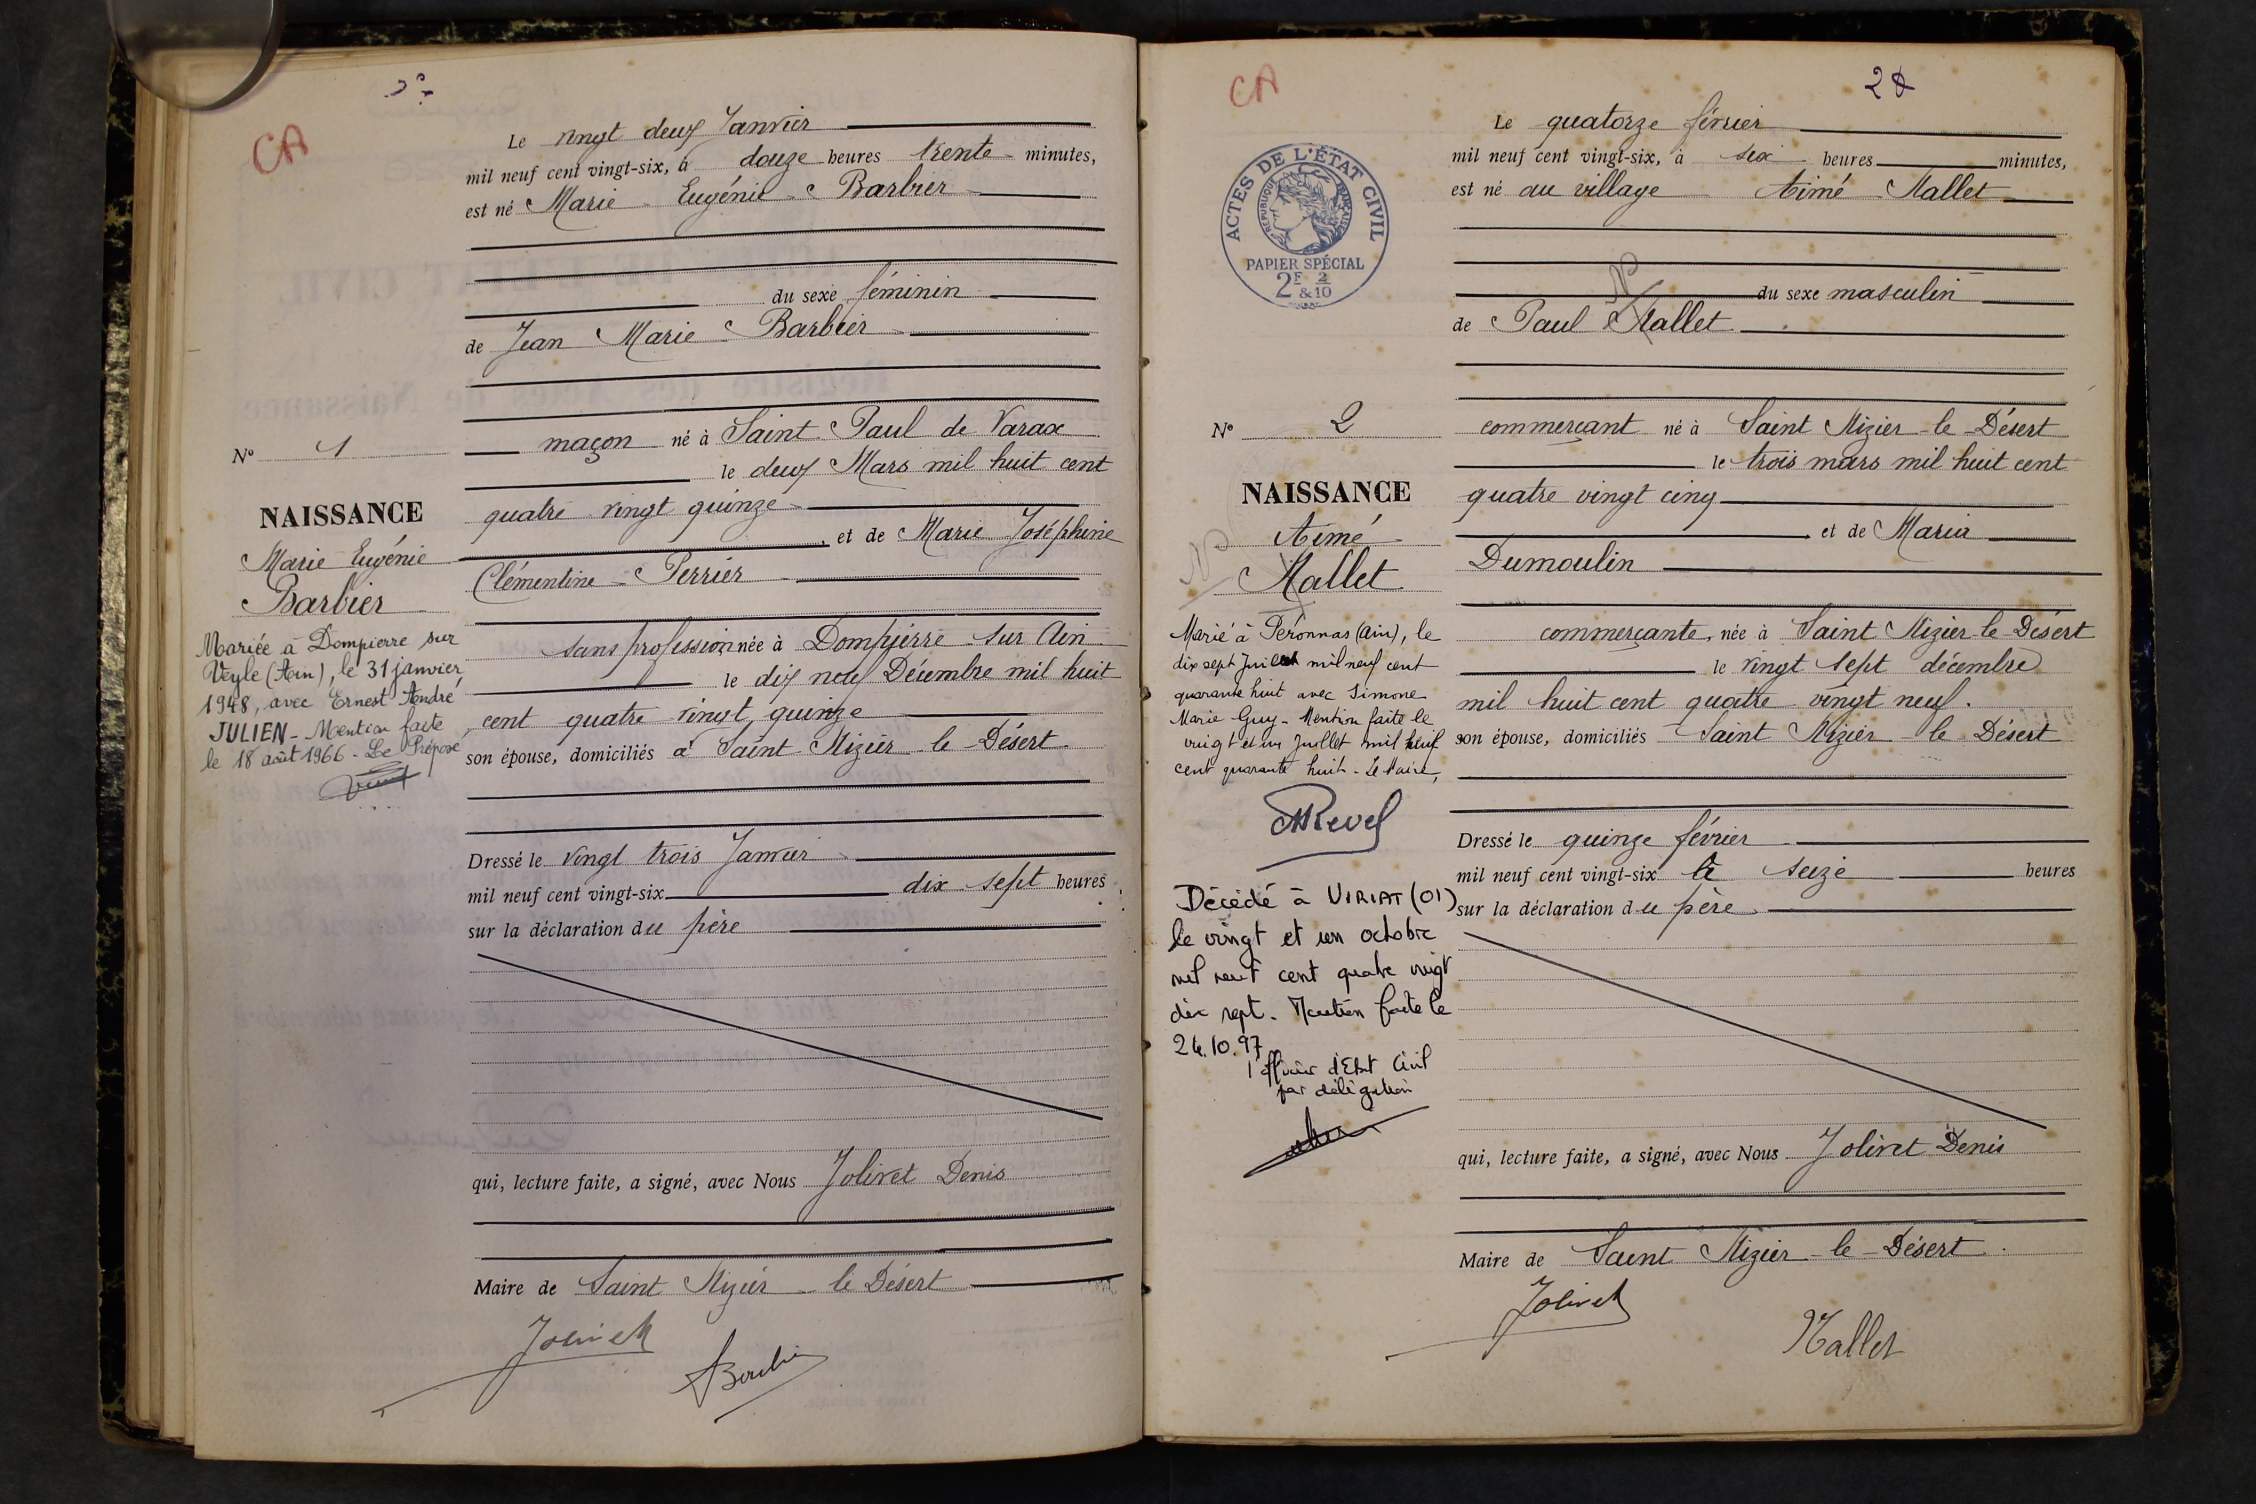 CA
Le vingt deux Janvier
mil neuf cent vingt-six, à douze heures trente minutes,
est né Marie Eugénie Barbier
du sexe féminin
de Jean Marie Barbier
maçon né à Saint Paul de Varax
le deux Mars mil huit cent
quatre vingt quinze
, et de Marie Joséphine
Clémentine Perrier
sans profession née à Dompierre sur Ain
le dix neuf Décembre mil huit
cent quatre vingt quinze
son épouse, domiciliés à Saint Nizier le Désert
Dressé le vingt trois Janvier
mil neuf cent vingt-six dix sept heures
sur la déclaration du père
qui, lecture faite, a signé, avec Nous Jolivet Denis
Maire de Saint Nizier le Désert
Jolivet
Barbier
N° 1
NAISSANCE
Marie Eugénie
Barbier
Mariée à Dompierre sur
Veyle (Ain), le 31 janvier
1948, avec Ernest André
JULIEN - Mention faite
le 18 août 1966 - Le Préposé
CA
28
ACTES DE L'ÉTAT CIVIL
RÉPUBLIQUE FRANÇAISE
PAPIER SPÉCIAL
2F & 2/10
Le quatorze février
mil neuf cent vingt-six, à six heures minutes,
est né au village Aimé Nallet
du sexe masculin
N
de Paul Nallet
commerçant né à Saint Nizier le Désert
le trois mars mil huit cent
quatre vingt cinq
et de Maria
Dumoulin
commerçante, née à Saint Nizier le Désert
le vingt sept décembre
mil huit cent quatre vingt neuf.
son épouse, domiciliés Saint Nizier le Désert
Dressé le quinze février
mil neuf cent vingt-six à seize heures
sur la déclaration du père
qui, lecture faite, a signé, avec Nous Jolivet Denis
Maire de Saint Nizier le Désert.
Jolivet
Nallet
N° 2
NAISSANCE
Aimé
N
Nallet
Marié à Péronnas (Ain), le
dix sept Juillet mil neuf cent
quarante huit avec Simone
Marie Guy - Mention faite le
vingt et un Juillet mil neuf
cent quarante huit - Le Maire,
Revel
Décédé à VIRIAT (01)
le vingt et un octobre
mil neuf cent quatre vingt
dix sept. Mention faite le
24.10.97
l'officier d'Etat Civil
par délégation